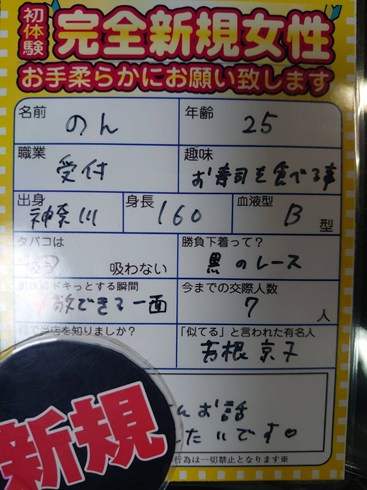 初体験
完全新規女性
お手柔らかにお願い致します
名前 のん
年齢 25
職業 受付
趣味 お寿司を食べる事
出身 神奈川
身長 160
血液型 B 型
タバコは 吸わない
勝負下着って? 黒のレース
ドキっとする瞬間
できる一面
今までの交際人数 7 人
知りましたか?
「似てる」と言われた有名人 吉根京子
んお話
たいです。
行為は一切禁止となります※
新規